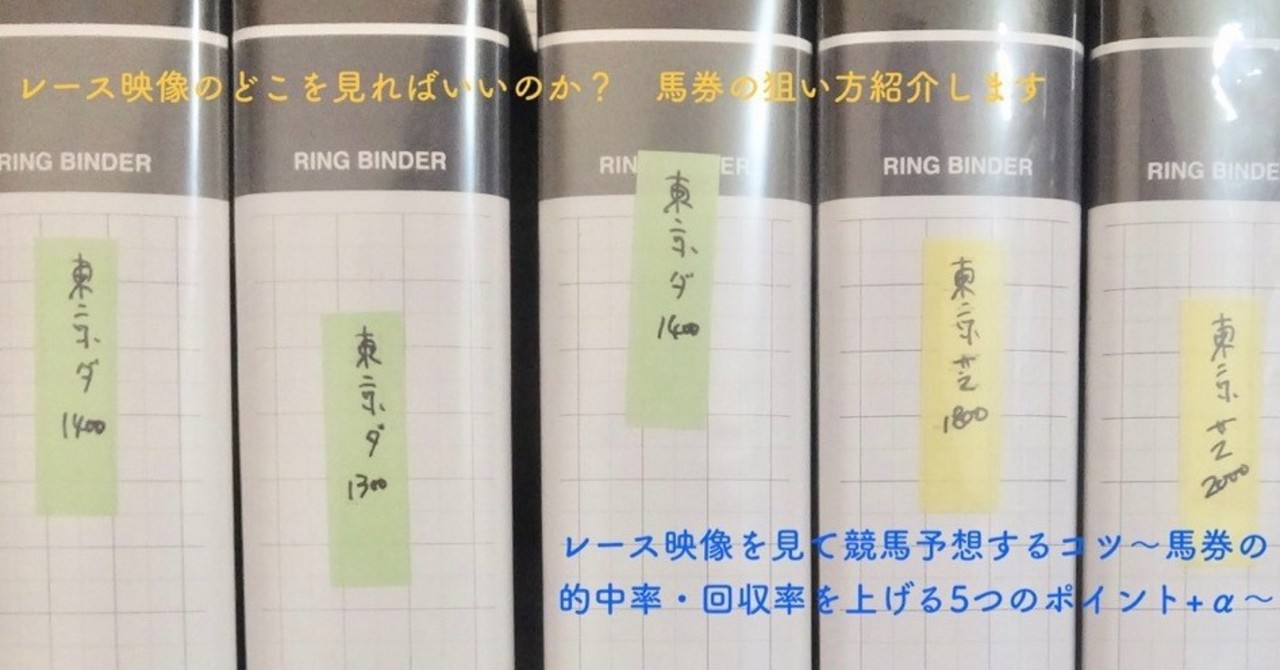 レース映像のどこを見ればいいのか？　馬券の狙い方紹介します
RING BINDER
RING BINDER
RIN
ER
RING BINDER
RING BINDE
東京ダ
1400
東京ダ
1300
東京ダ
1400
東京芝
1800
東京芝
2000
レース映像を見て競馬予想するコツ～馬券の
的中率・回収率を上げる5つのポイント+α～